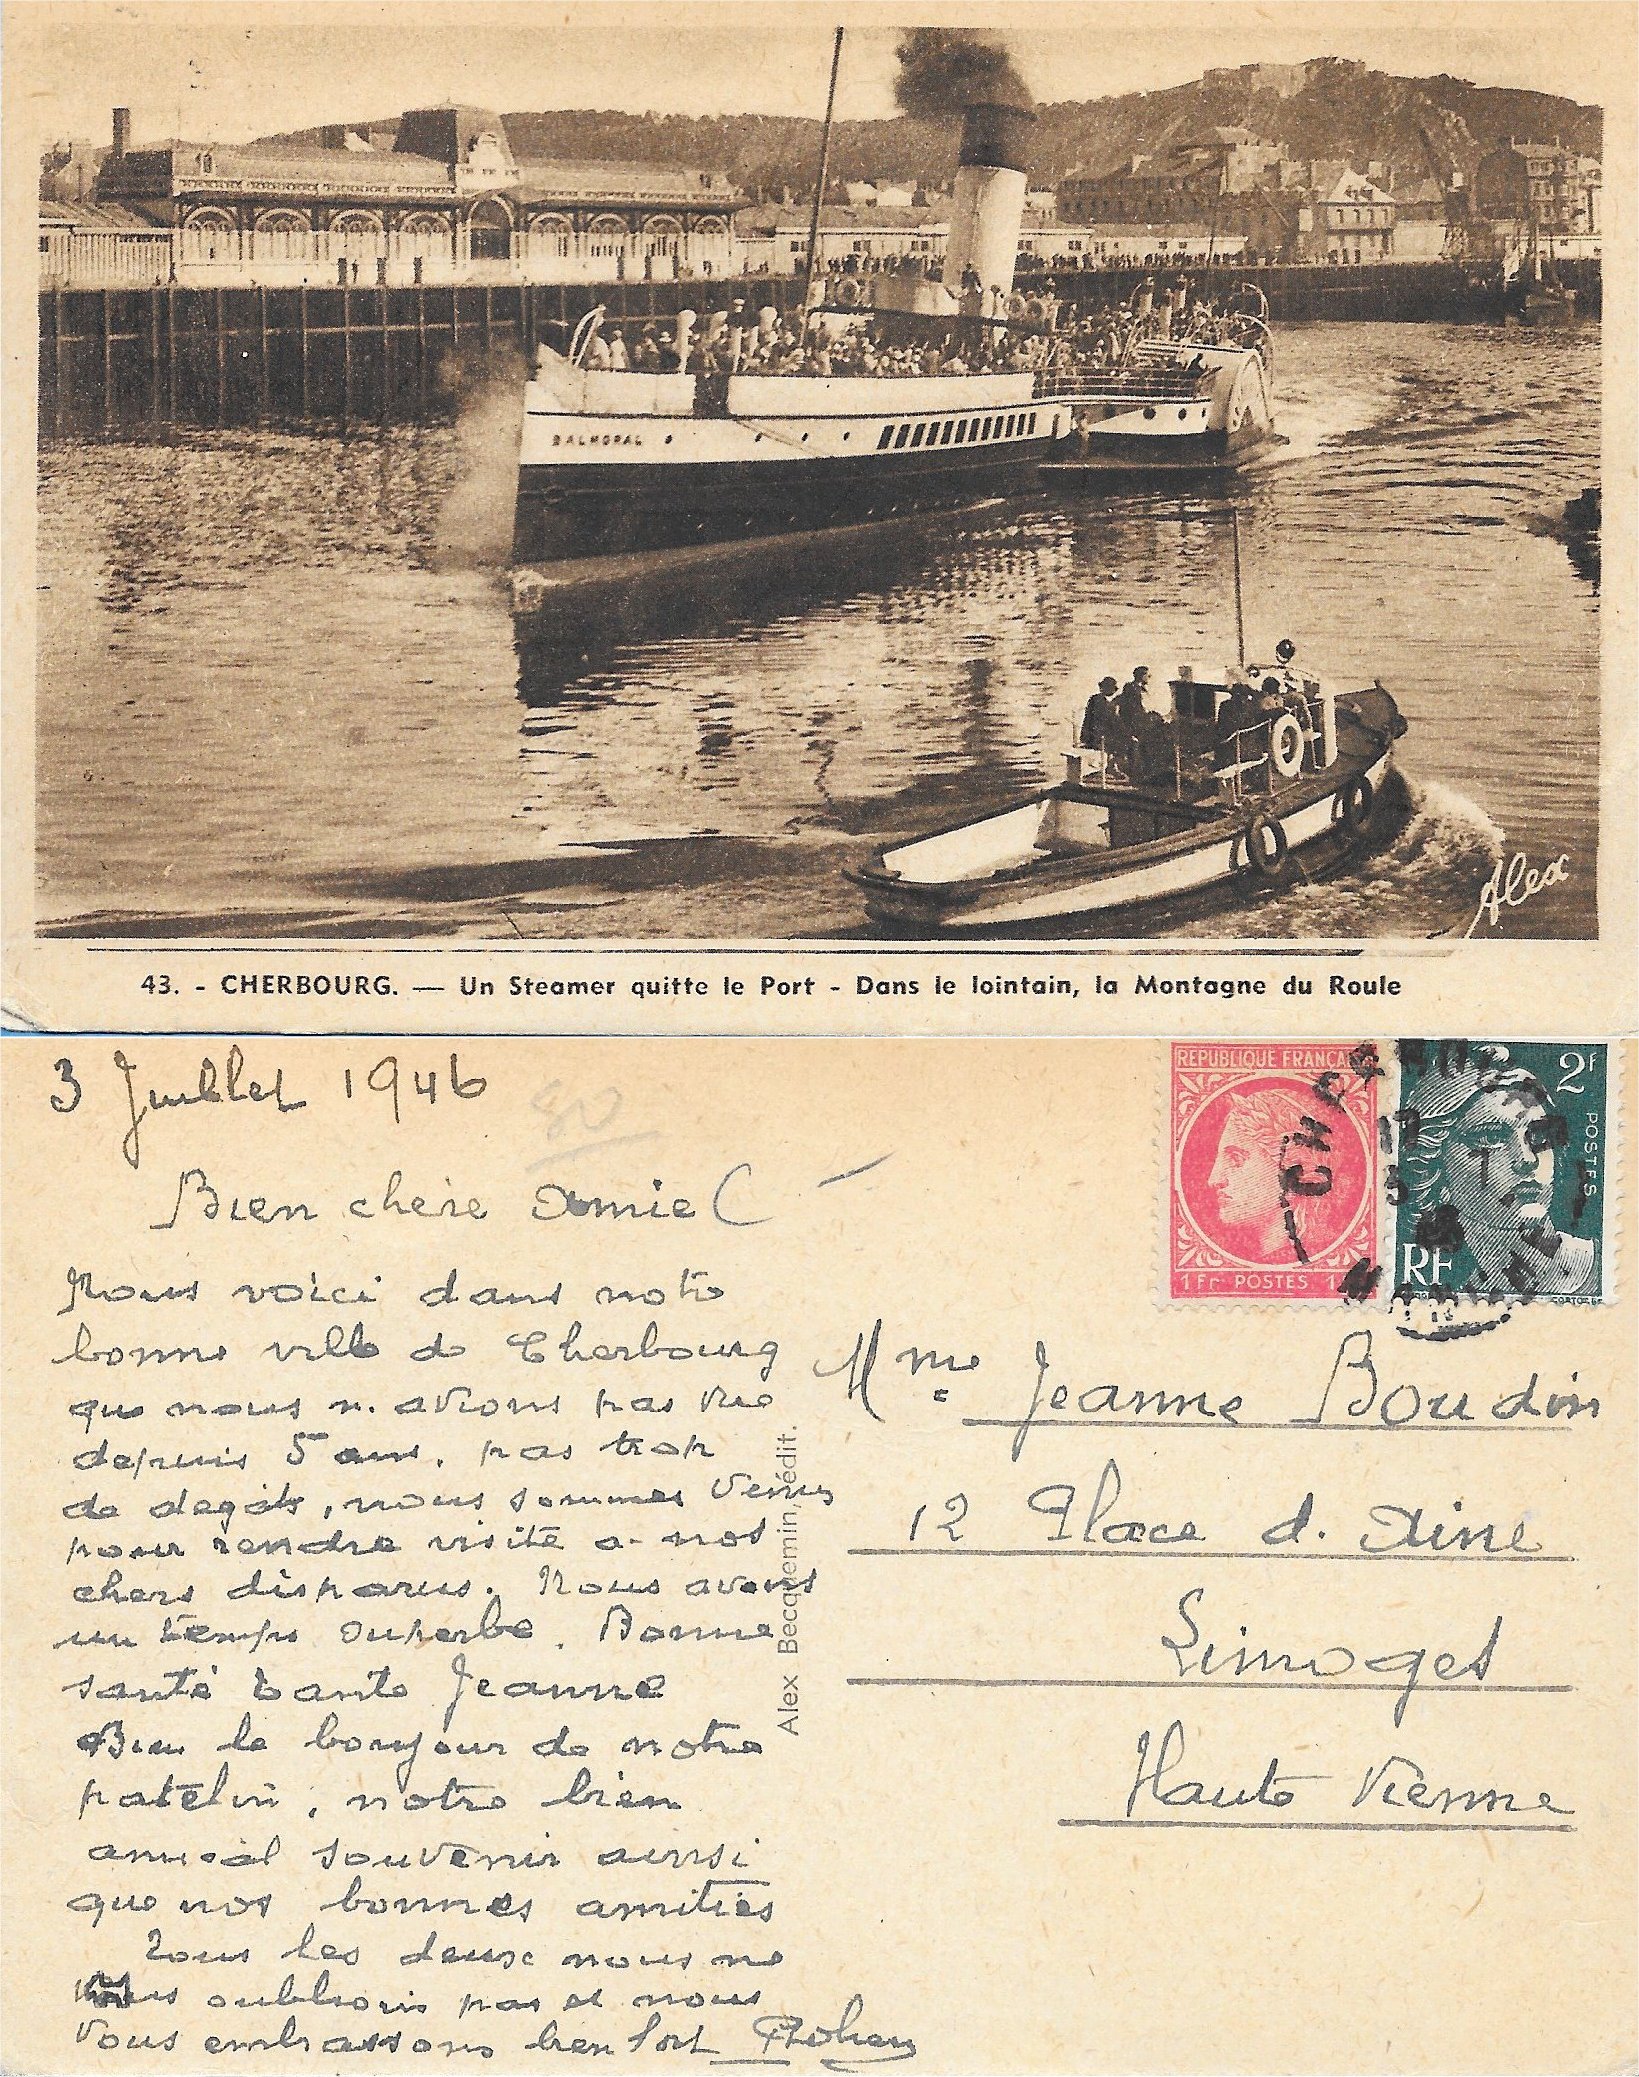 BALMORAL
Alex
43. - CHERBOURG. — Un Steamer quitte le Port - Dans le lointain, la Montagne du Roule
3 Juillet 1946
Bien chère Amie
Nous voici dans notre
bonne ville de Cherbourg
que nous n. avions pas vue
depuis 5 ans. pas trop
de degâts, nous sommes venus
pour rendre visite a nos
chers disparus. Nous avons
un temps superbe. Bonne
santé tante Jeanne
Bien le bonjour de notre
patelin, notre bien
amical souvenir ainsi
que nos bonnes amitiés
Tous les deux nous ne
vous oublions pas et nous
vous embrassons bien fort
Alex Becquemin, édit.
REPUBLIQUE FRANCAISE
1 Fr POSTES
2F
POSTES
RF
CHERBOURG
17
Mme Jeanne Boudin
12 Place d. Aine
Limoges
Haute Vienne